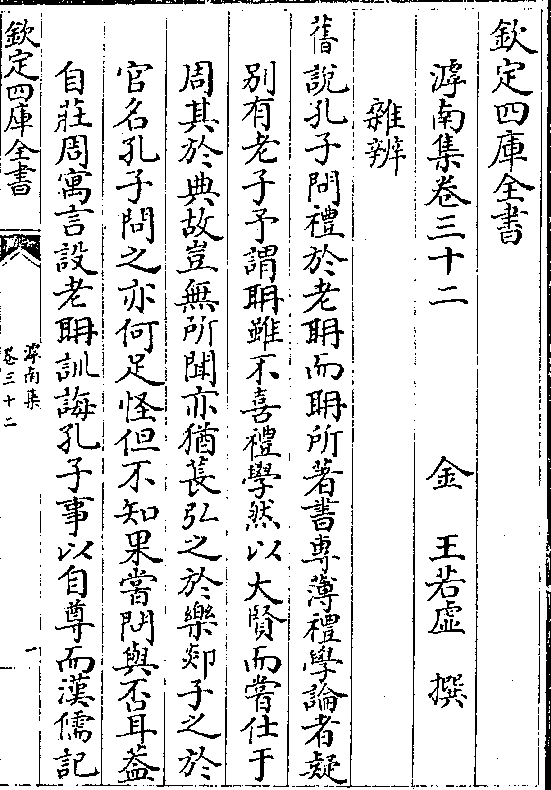 欽定四庫全書
滹南集卷三十二
金 王若虛 撰
雜辨
舊說孔子問禮於老聃而聃所著書專薄禮學論者疑
別有老子予謂聃雖不喜禮學然以大賢而嘗仕于
周其於典故豈無所聞亦猶萇弘之於樂郯子之於
官名孔子問之亦何足怪但不知果嘗問與否耳葢
自莊周寓言設老聃訓誨孔子事以自尊而漢儒記
欽定四庫全書
滹南集
卷三十二
一